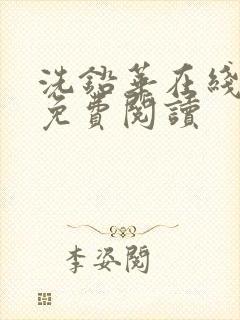 洗鉛華在綫
免費閱讀
李姿閱